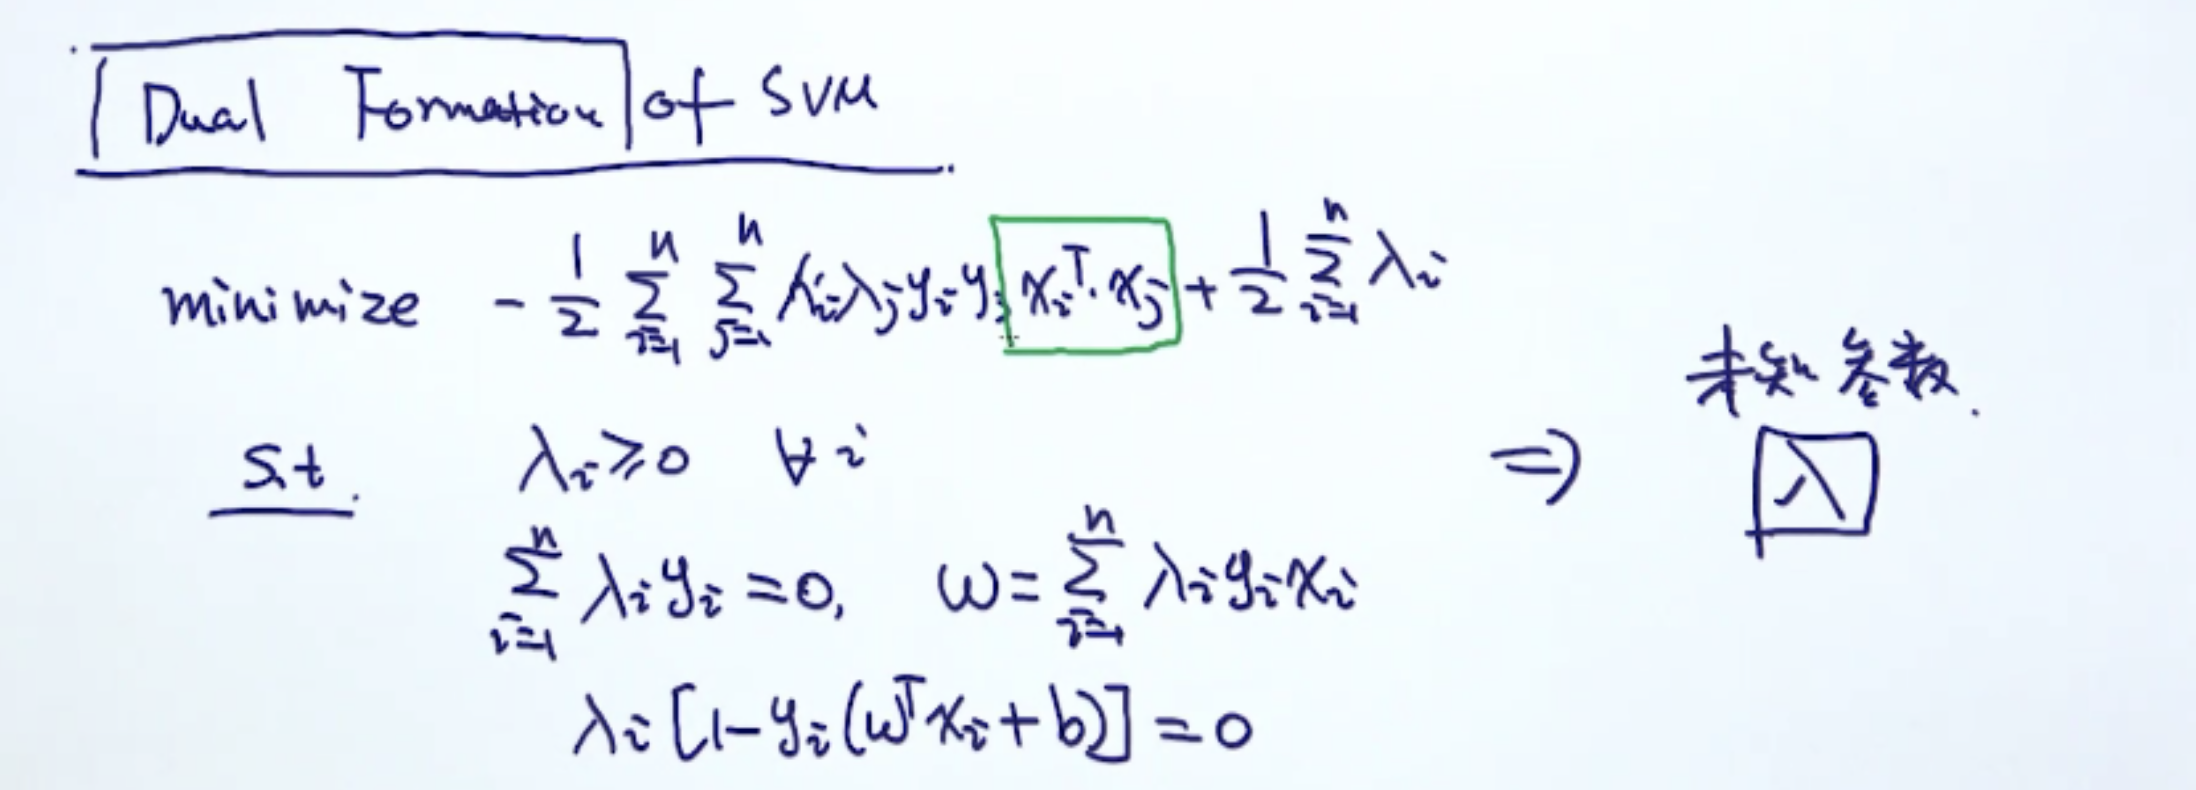 Dual Formation of SVM
minimize -1/2 Σ_{i=1}^{n} Σ_{j=1}^{n} λ_i λ_j y_i y_j x_i^T · x_j + 1/2 Σ_{i=1}^{n} λ_i
未知参数.
s.t. λ_i ≥ 0 ∀ i ⇒ λ
Σ_{i=1}^{n} λ_i y_i = 0, ω = Σ_{i=1}^{n} λ_i y_i x_i
λ_i [1 - y_i (ω^T x_i + b)] = 0